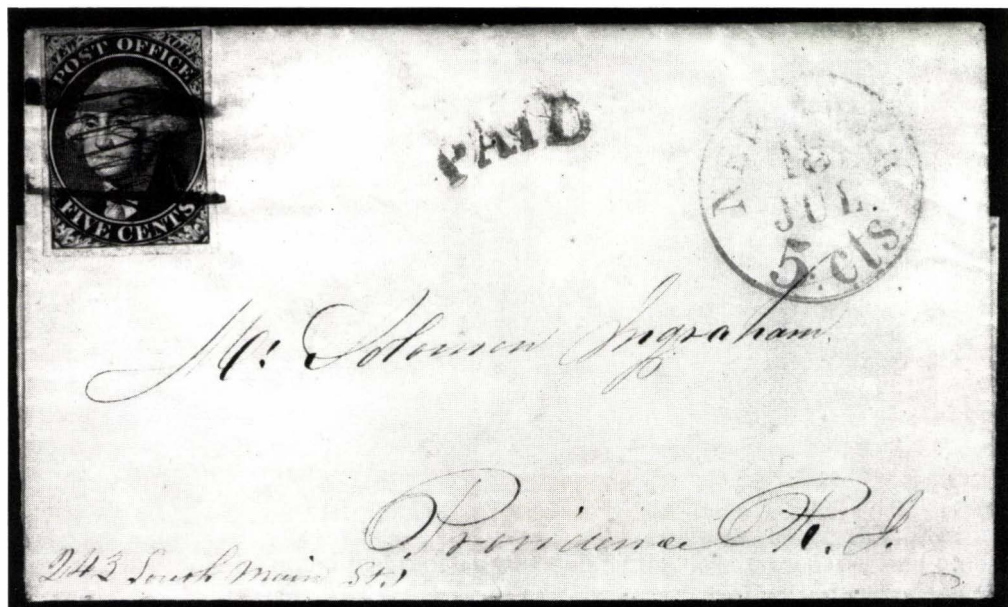 NEW YORK
POST OFFICE
FIVE CENTS
PAID
NEW YORK
18
JUL.
5 cts.
Mr Solomon Ingraham.
Providence R. I.
243 South Main St.